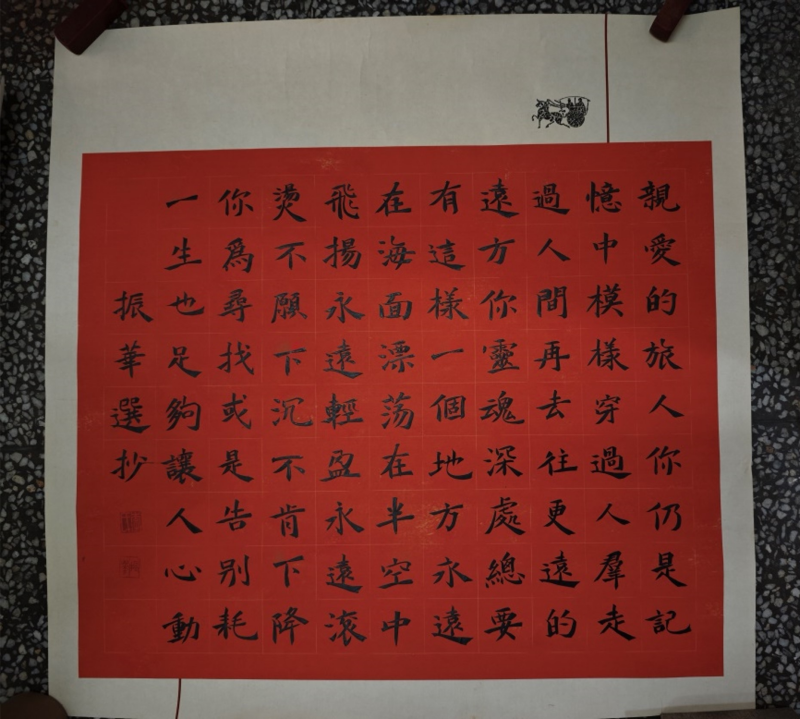 親愛的旅人你仍是記
憶中模樣穿過人羣走
過人間再去往更遠的
遠方你靈魂深處總要
有這樣一個地方永遠
在海面漂荡在半空中
飛揚永遠輕盈永遠滚
燙不願下沉不肯下降
你爲尋找或是告别耗
一生也足夠讓人心動
振華選抄